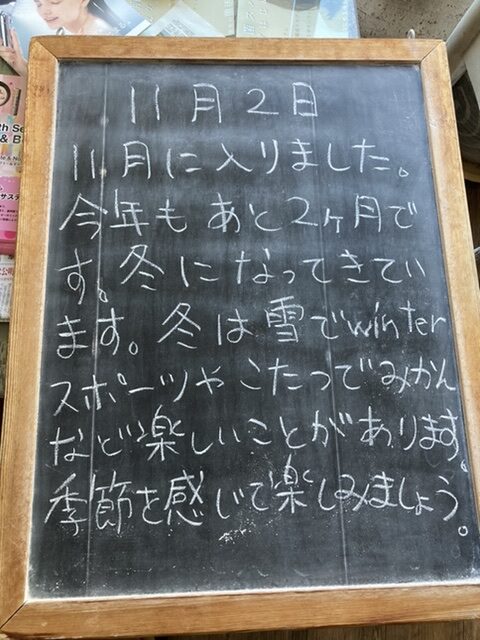 11月2日
11月に入りました。
今年もあと2ヶ月で
す。冬になってきてい
ます。冬は雪でwinter
スポーツやこたつでみかん
など楽しいことがあります。
季節を感じて楽しみましょう。